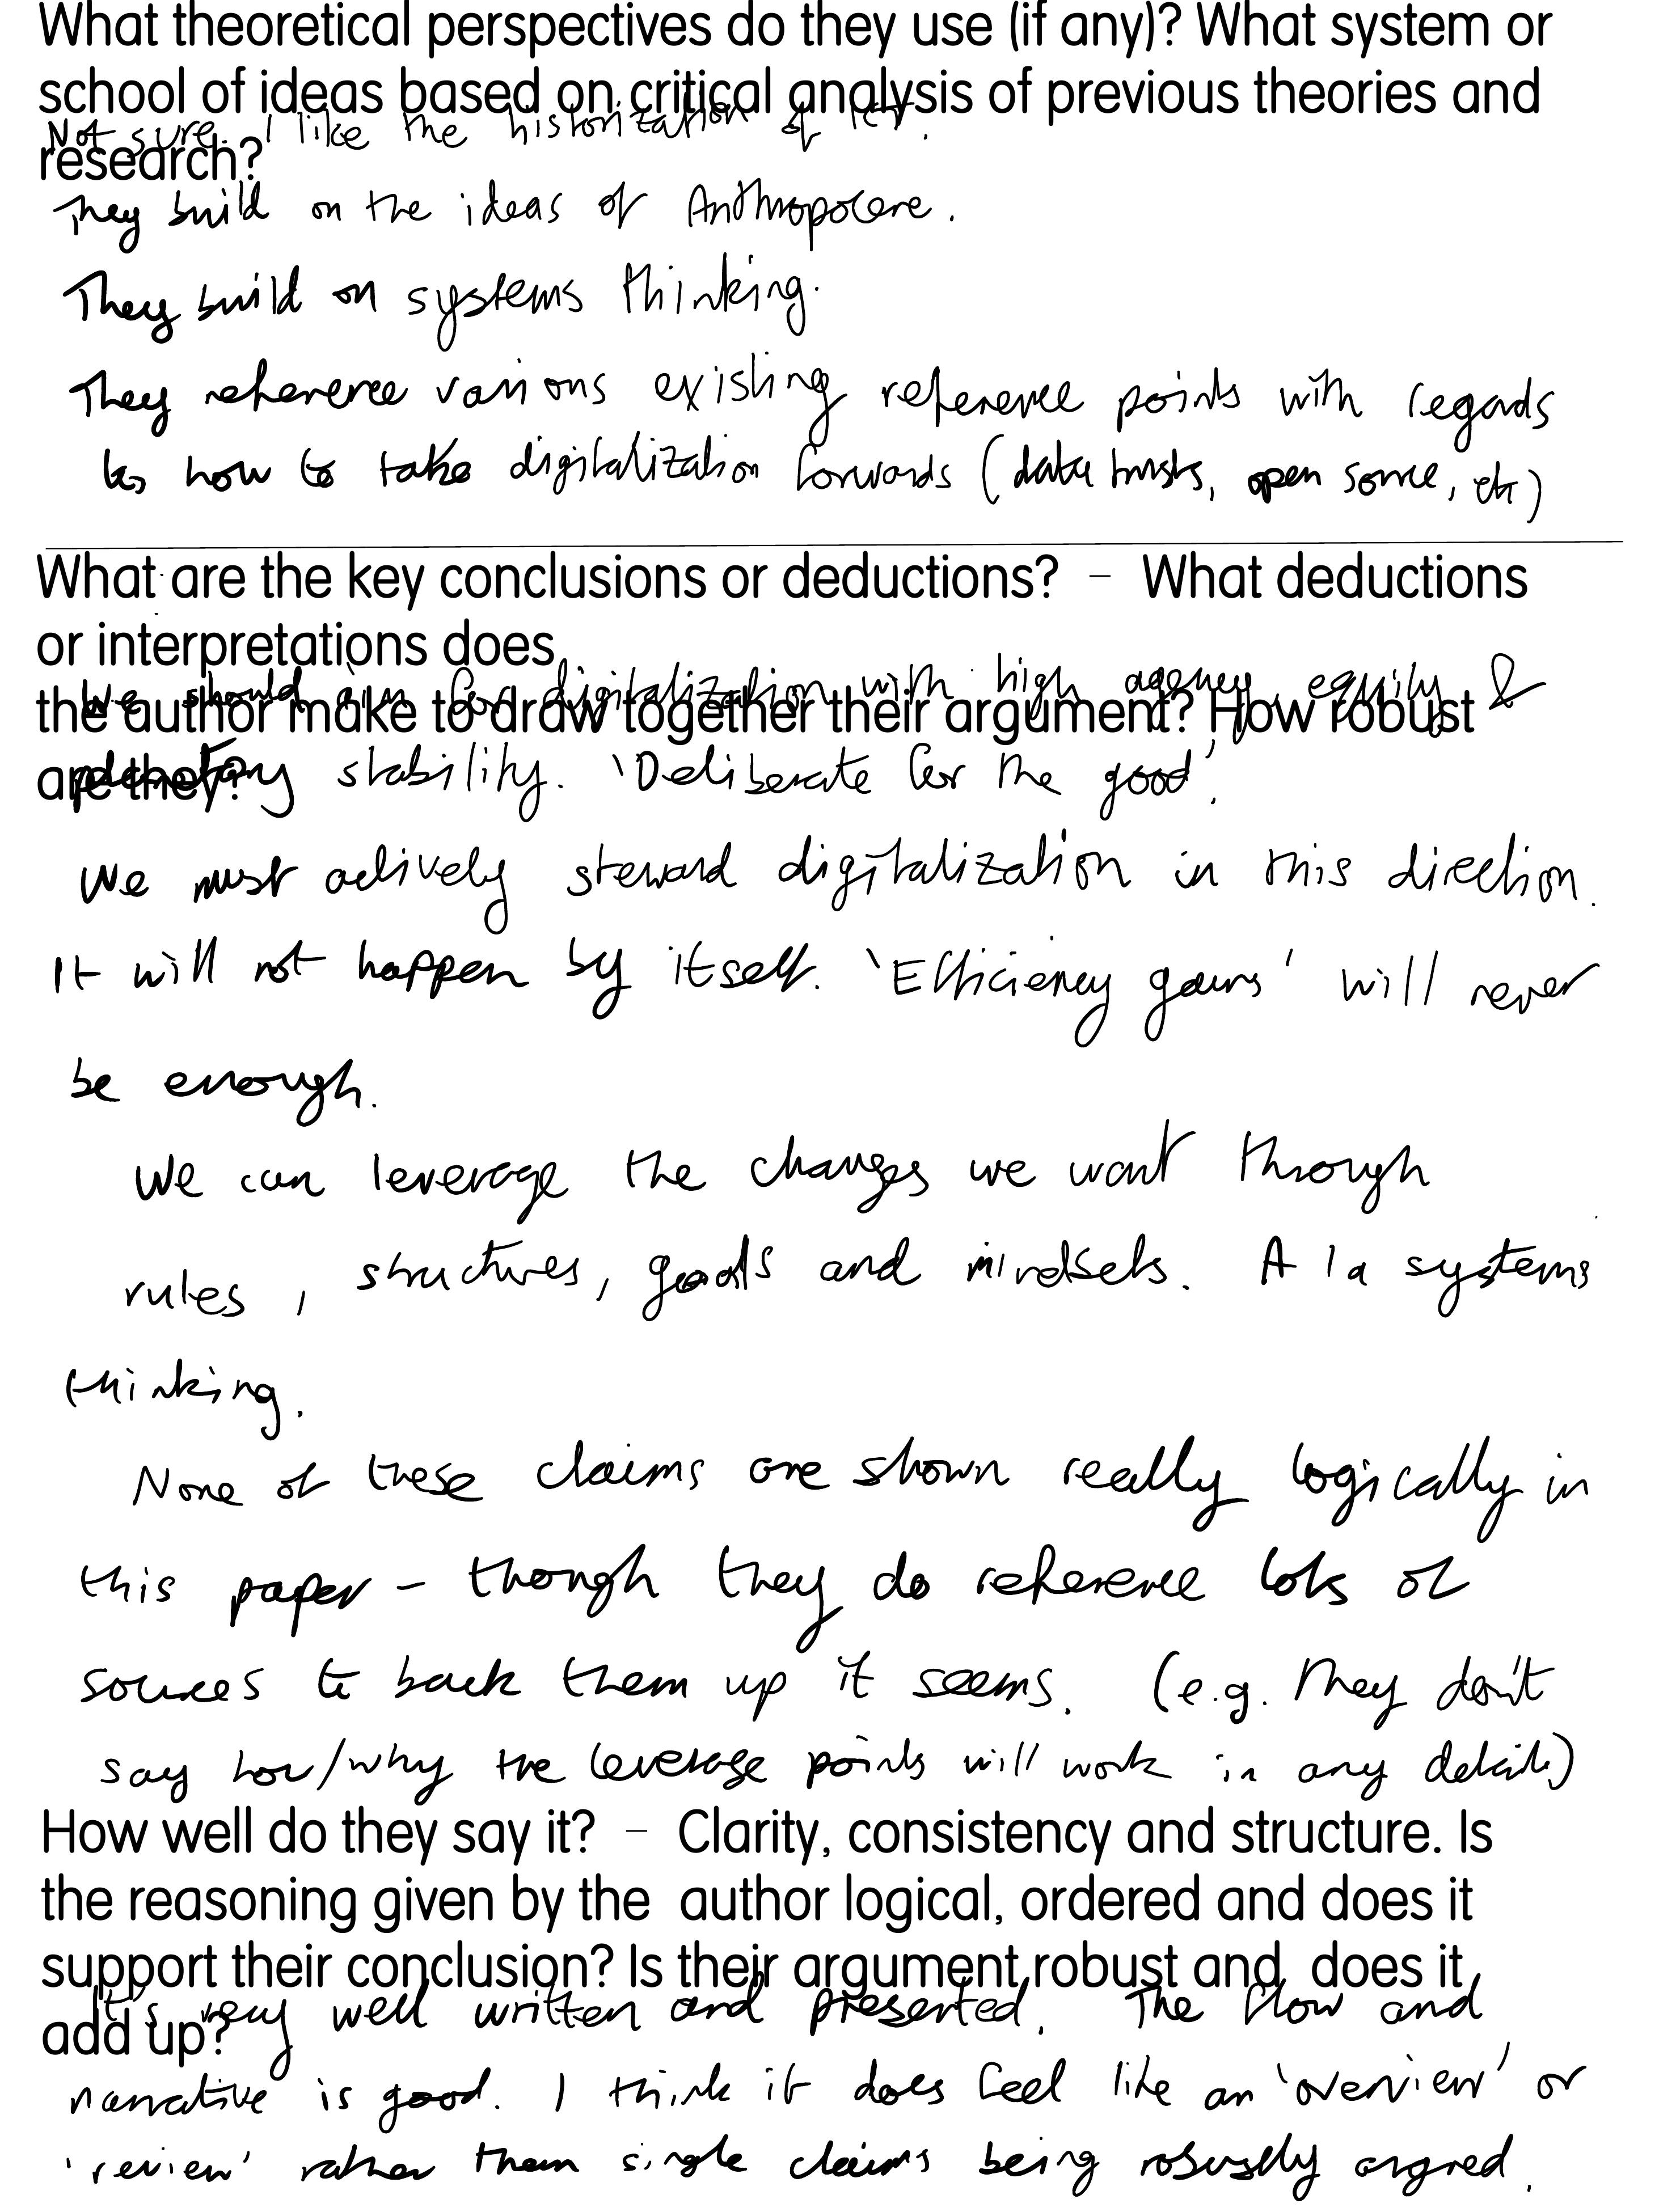 What theoretical perspectives do they use (if any)? What system or
school of ideas based on critical analysis of previous theories and
Not sure. I like the historization of ICT.
research?
They build on the ideas of Anthropocene.
They build on systems thinking.
They reference various existing reference points with regards
to how to take digitalization forwards (data trusts, open source, etc)
What are the key conclusions or deductions? – What deductions
or interpretations does
We should aim for digitalization with high agency, equity &
the author make to draw together their argument? How robust
are they?
planetary stability. 'Deliberate for the good'.
We must actively steward digitalization in this direction.
It will not happen by itself. 'Efficiency gains' will never
be enough.
We can leverage the changes we want through
rules, structures, goals and mindsets. A la systems
thinking.
None of these claims are shown really logically in
this paper – though they do reference lots of
sources to back them up it seems. (e.g. they don't
say how/why the leverage points will work in any detail)
How well do they say it? – Clarity, consistency and structure. Is
the reasoning given by the author logical, ordered and does it
support their conclusion? Is their argument robust and does it
It's very well written and presented. The flow and
add up?
narrative is good. I think it does feel like an 'overview' or
'review' rather than single claims being robustly argued.